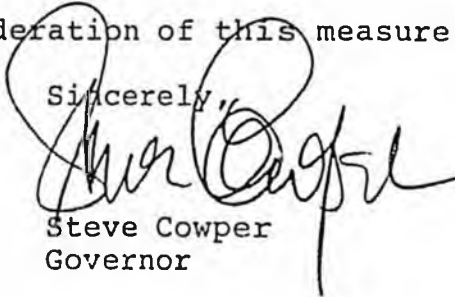 deration of this measure
Sincerely,
Steve Cowper
Steve Cowper
Governor